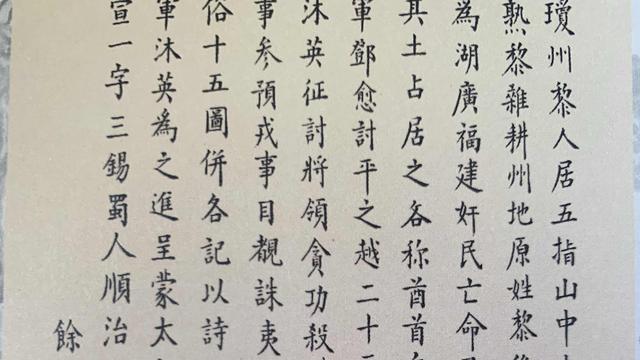 瓊州黎人居五指山中
熟黎雜耕州地原姓黎後
為湖廣福建奸民亡命
其土占居之各称酋首
軍鄧愈討平之越二十
沐英征討將領貪功殺
事參預戎事目覩誅夷
俗十五圖併各記以詩
軍沐英爲之進呈蒙太
宣一字三錫蜀人順治
餘